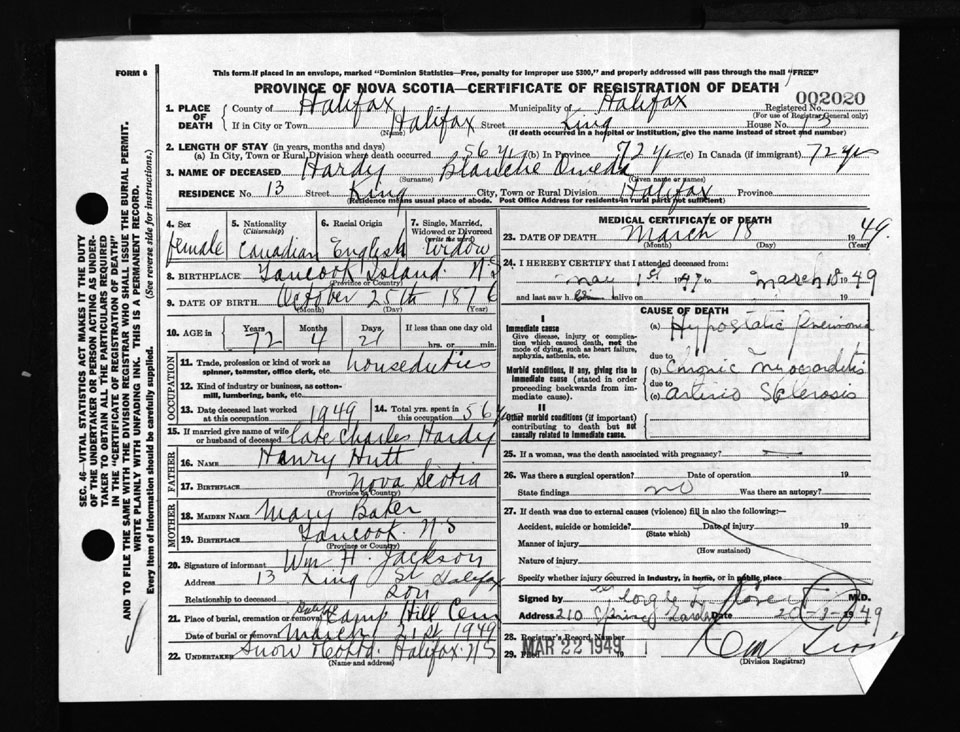 FORM 6
This form if placed in an envelope, marked "Dominion Statistics—Free, penalty for improper use $300," and properly addressed will pass through the mail "FREE"
PROVINCE OF NOVA SCOTIA—CERTIFICATE OF REGISTRATION OF DEATH
002020
1. PLACE OF DEATH County of Halifax Municipality of Halifax Registered No.
(For use of Registrar General only)
If in City or Town Halifax Street King House No. 13
(Name) (If death occurred in a hospital or institution, give the name instead of street and number)
2. LENGTH OF STAY (in years, months and days)
(a) In City, Town or Rural Division where death occurred 56 yrs (b) In Province 72 yrs (c) In Canada (if immigrant) 72 yrs
3. NAME OF DECEASED Hardy Blanche
(Surname) (Given name or names)
RESIDENCE No. 13 Street King City, Town or Rural Division Halifax Province
(Residence means usual place of abode. Post Office Address for residents in rural parts not sufficient)
4. Sex female
5. Nationality (Citizenship) Canadian
6. Racial Origin English
7. Single, Married, Widowed or Divorced (write the word) Widow
8. BIRTHPLACE Tancook Island. N S
(Province or Country)
9. DATE OF BIRTH October 25th 1876
(Month) (Day) (Year)
10. AGE in Years 72 Months 4 Days 21 If less than one day old
hrs. or min.
OCCUPATION
11. Trade, profession or kind of work as spinner, teamster, office clerk, etc. houseduties
12. Kind of industry or business, as cotton-mill, lumbering, bank, etc.
13. Date deceased last worked at this occupation 1949 14. Total yrs. spent in this occupation 56 yrs
15. If married give name of wife or husband of deceased late Charles Hardy
FATHER
16. NAME Henry Hutt
17. BIRTHPLACE Nova Scotia
(Province or Country)
MOTHER
18. MAIDEN NAME Mary Baker
19. BIRTHPLACE Tancook N S
(Province or Country)
20. Signature of informant Wm H. Jackson
Address 13 King St Halifax
Relationship to deceased son
21. Place of burial, cremation or removal Halifax Camp Hill Cem
Date of burial or removal March 21st 1949
22. UNDERTAKER Snow Halifax. N S
(Name and address)
MEDICAL CERTIFICATE OF DEATH
23. DATE OF DEATH March 18 1949
(Month) (Day) (Year)
24. I HEREBY CERTIFY that I attended deceased from:
1st 1947 to March 18 1949
and last saw h er alive on 19
CAUSE OF DEATH
I
Immediate cause
Give disease, injury or complication which caused death, not the mode of dying, such as heart failure, asphyxia, asthenia, etc.
(a) Hypostatic Pneumonia
due to
Morbid conditions, if any, giving rise to immediate cause (stated in order proceeding backwards from immediate cause).
(b) Chronic Myocarditis
due to
(c) arterio Sclerosis
II
Other morbid conditions (if important) contributing to death but not causally related to immediate cause.
25. If a woman, was the death associated with pregnancy?
26. Was there a surgical operation? Date of operation 19
State findings no Was there an autopsy?
27. If death was due to external causes (violence) fill in also the following:—
Accident, suicide or homicide? Date of injury 19
(State which)
Manner of injury
(How sustained)
Nature of injury
Specify whether injury occurred in industry, in home, or in public place
Signed by M.D.
Address 210 Spring Garden Date 20-3-1949
28. Registrar's Record Number
29. Filed MAR 22 1949 19
(Division Registrar)
SEC. 46—VITAL STATISTICS ACT MAKES IT THE DUTY
OF THE UNDERTAKER OR PERSON ACTING AS UNDER-
TAKER TO OBTAIN ALL THE PARTICULARS REQUIRED
IN THE "CERTIFICATE OF REGISTRATION OF DEATH"
AND TO FILE THE SAME WITH THE DIVISION REGISTRAR WHO SHALL ISSUE THE BURIAL PERMIT.
WRITE PLAINLY WITH UNFADING INK. THIS IS A PERMANENT RECORD.
Every item of information should be carefully supplied. (See reverse side for instructions.)